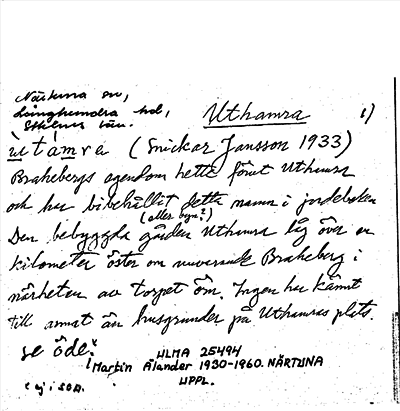 Närtuna sn,
Långhundra hd,
Sthlms län.
Uthamra 1)
ùtámra (Snickar Jansson 1933)
Brahebergs egendom hette förut Uthamra
och har bibehållit detta namn i jordeboken
(eller byn?)
Den bebyggda gården Uthamra låg över en
kilometer öster om nuvarande Braheberg i
närheten av torpet Öm. Ingen har känt
till annat än husgrunder på Uthamras plats.
se öde?
ULMA 25494
Martin Ålander 1930-1960. NÄRTUNA
UPPL.
ej i SOA.